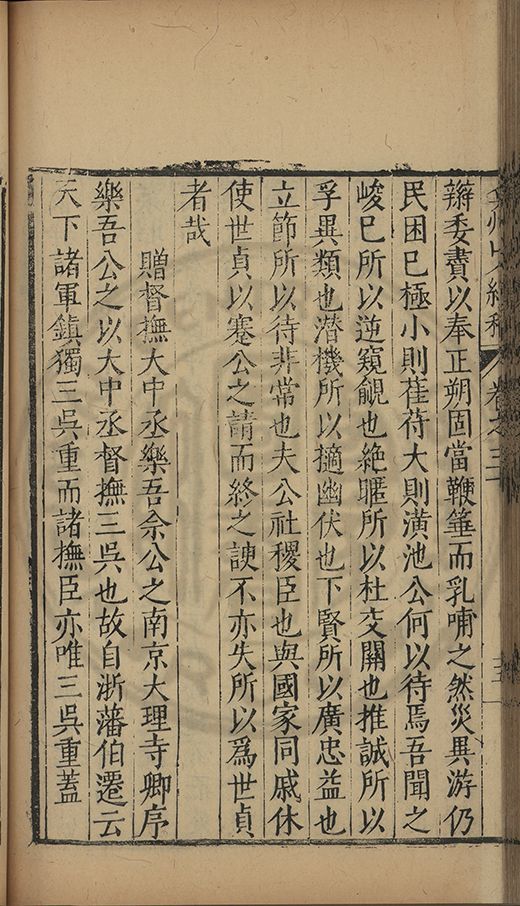 辮委賮以奉正朔固當鞭箠而乳哺之然災異游仍
民困已極小則萑苻大則潢池公何以待焉吾聞之
峻已所以逆窺覦也絶暱所以杜交關也推誠所以
孚異類也潛機所以擿幽伏也下賢所以廣忠益也
立節所以待非常也夫公社稷臣也與國家同戚休
使世貞以蹇公之請而終之諛不亦失所以爲世貞
者哉
贈督撫大中丞樂吾佘公之南京大理寺卿序
樂吾公之以大中丞督撫三吳也故自浙藩伯遷云
天下諸軍鎮獨三吳重而諸撫臣亦唯三吳重蓋